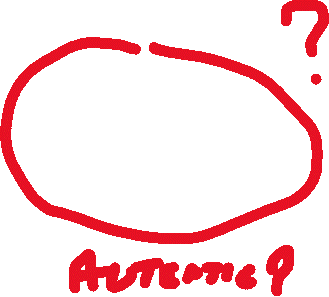 ?
AUTENTIC?